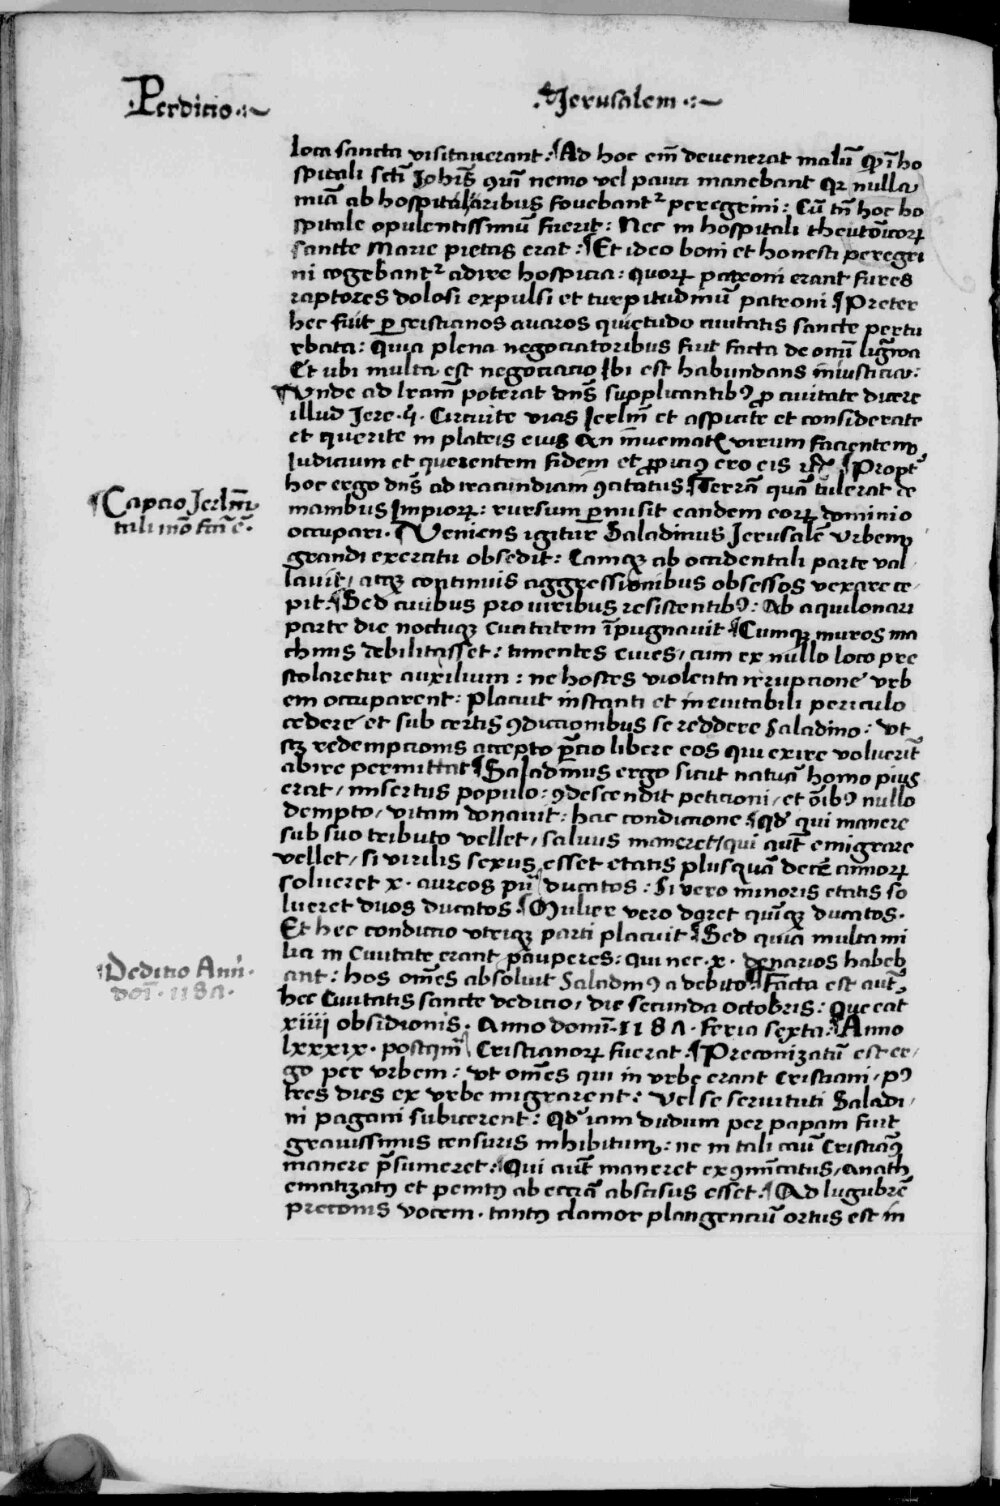 Perditio ·:~
·Jerusalem ·:~
loca sancta visitauerant: ¶Ad hoc em̄ deuenerat malū ꝙ ī ho
spitali sctī Johīs quī nemo vel pauci manebant qꝛ nulla
miā ab hospitalaribus fouebantᷣ peregrini: Cū tn̄ hoc ho
spitale opulentissimū fuerit: Nec in hospitali theutōicoꝝ
sancte Marie pietas erat: ¶Et ideo boni et honesti peregri
ni cogebantᷣ adire hospicia: quoꝝ patroni erant fures
raptores dolosi expulsi et turpitudinū patroni ¶Preter
hec fuit ꝑ cristianos auaros quietudo ciuitatis sancte pertu
rbata: Quia plena negociatoribus fuit facta de omī ligwa
Et ubi multa est negociacio Ibi est habundans iniusticia:
¶Vnde ad lr̄am poterat dn̄s supplicantibꝰ ꝓ ciuitate dicere
illud Jere·5· Circuite vias Jerlm̄ et aspicite et considerate
et querite in plateis eius An inueniatꝭ virum facientem
Iudicium et querentem fidem et ꝓpiciꝰ ero eis ⁊c̄ ¶Propt᷑
hoc ergo dn̄s ad iracundiam ꝯcitatus ¶Terrā quā tulerat de
manibus Impioꝝ: rursum ꝑmisit eandem eoꝝ dominio
occupari· ¶Veniens igitur Saladinus Jerusalē vrbem
grandi exercitu obsedit: Eamqꝫ ab occidentali parte val
lauit/ atqꝫ continuis aggressionibus obsessos vexare ce
pit: ¶Sed ciuibus pro viribus resistentibꝰ: Ab aquilonari
parte die noctuqꝫ Ciuitatem īpugnauit ¶Cumqꝫ muros ma
chinis debilitasset: timentes ciues/ cum ex nullo loco pre
stolaretur auxilium: ne hostes violenta irrupcione vrb
em occuparent: Placuit instanti et ineuitabili periculo
cedere et sub certis ꝯdicionibus se reddere Saladino: vt
scꝫ redempcionis accepto p̄cio libere eos qui exire voluerīt
abire permittat ¶Saladinus ergo sicut naturā homo pius
erat/ misertus populo: ꝯdescendit peticioni/ et oībꝰ nullo
dempto/ vitam donauit: hac condicione ¶Qd̓ qui manere
sub suo tributo vellet/ saluus maneret/ qui aūt emigrare
vellet/ si virilis sexus esset etatis plusquā decē annoꝝ
solueret x· aureos pū ducatos: Si vero minoris etatis so
lueret duos ducatos· ¶Mulier vero daret quīqꝫ ducatos·
Et hec condicio vtriqꝫ parti placuit ¶Sed quia multa mi
lia in Ciuitate erant pauperes: qui nec ·x· denarios habeb
ant: hos om̄es absoluit Saladinꝰ a debito ¶Facta est aūt
hec Ciuitatis sancte dedicio/ die secunda Octobris: Que erat
xiiii obsidionis· Anno domī·1187· feria sexta: ¶Anno
lxxxix· postqm̄ Cristianoꝝ fuerat· ¶Preconizatū est er/
go per vrbem: vt om̄es qui in vrbe erant Cristiani/ pꝰ
tres dies ex vrbe migrarent: Vel se seruituti Saladi/
ni pagani subicerent: Qd̓ iam dudum per papam fuit
grauissimis censuris inhibitum: ne in tali cāu Cristiāꝰ
manere p̄sumeret: ¶Qui aūt maneret exꝯm̄icatus/ Anath
ematizatꝰ et penitꝰ ab eccīā abscisus esset: ¶Ad lugubrē
preconis vocem· tantꝰ clamor plangenciū ortus est in
¶Captio Jerlm̄
tali mō fc̄ā ē·
¶Deditio Anī·
domī·1187·